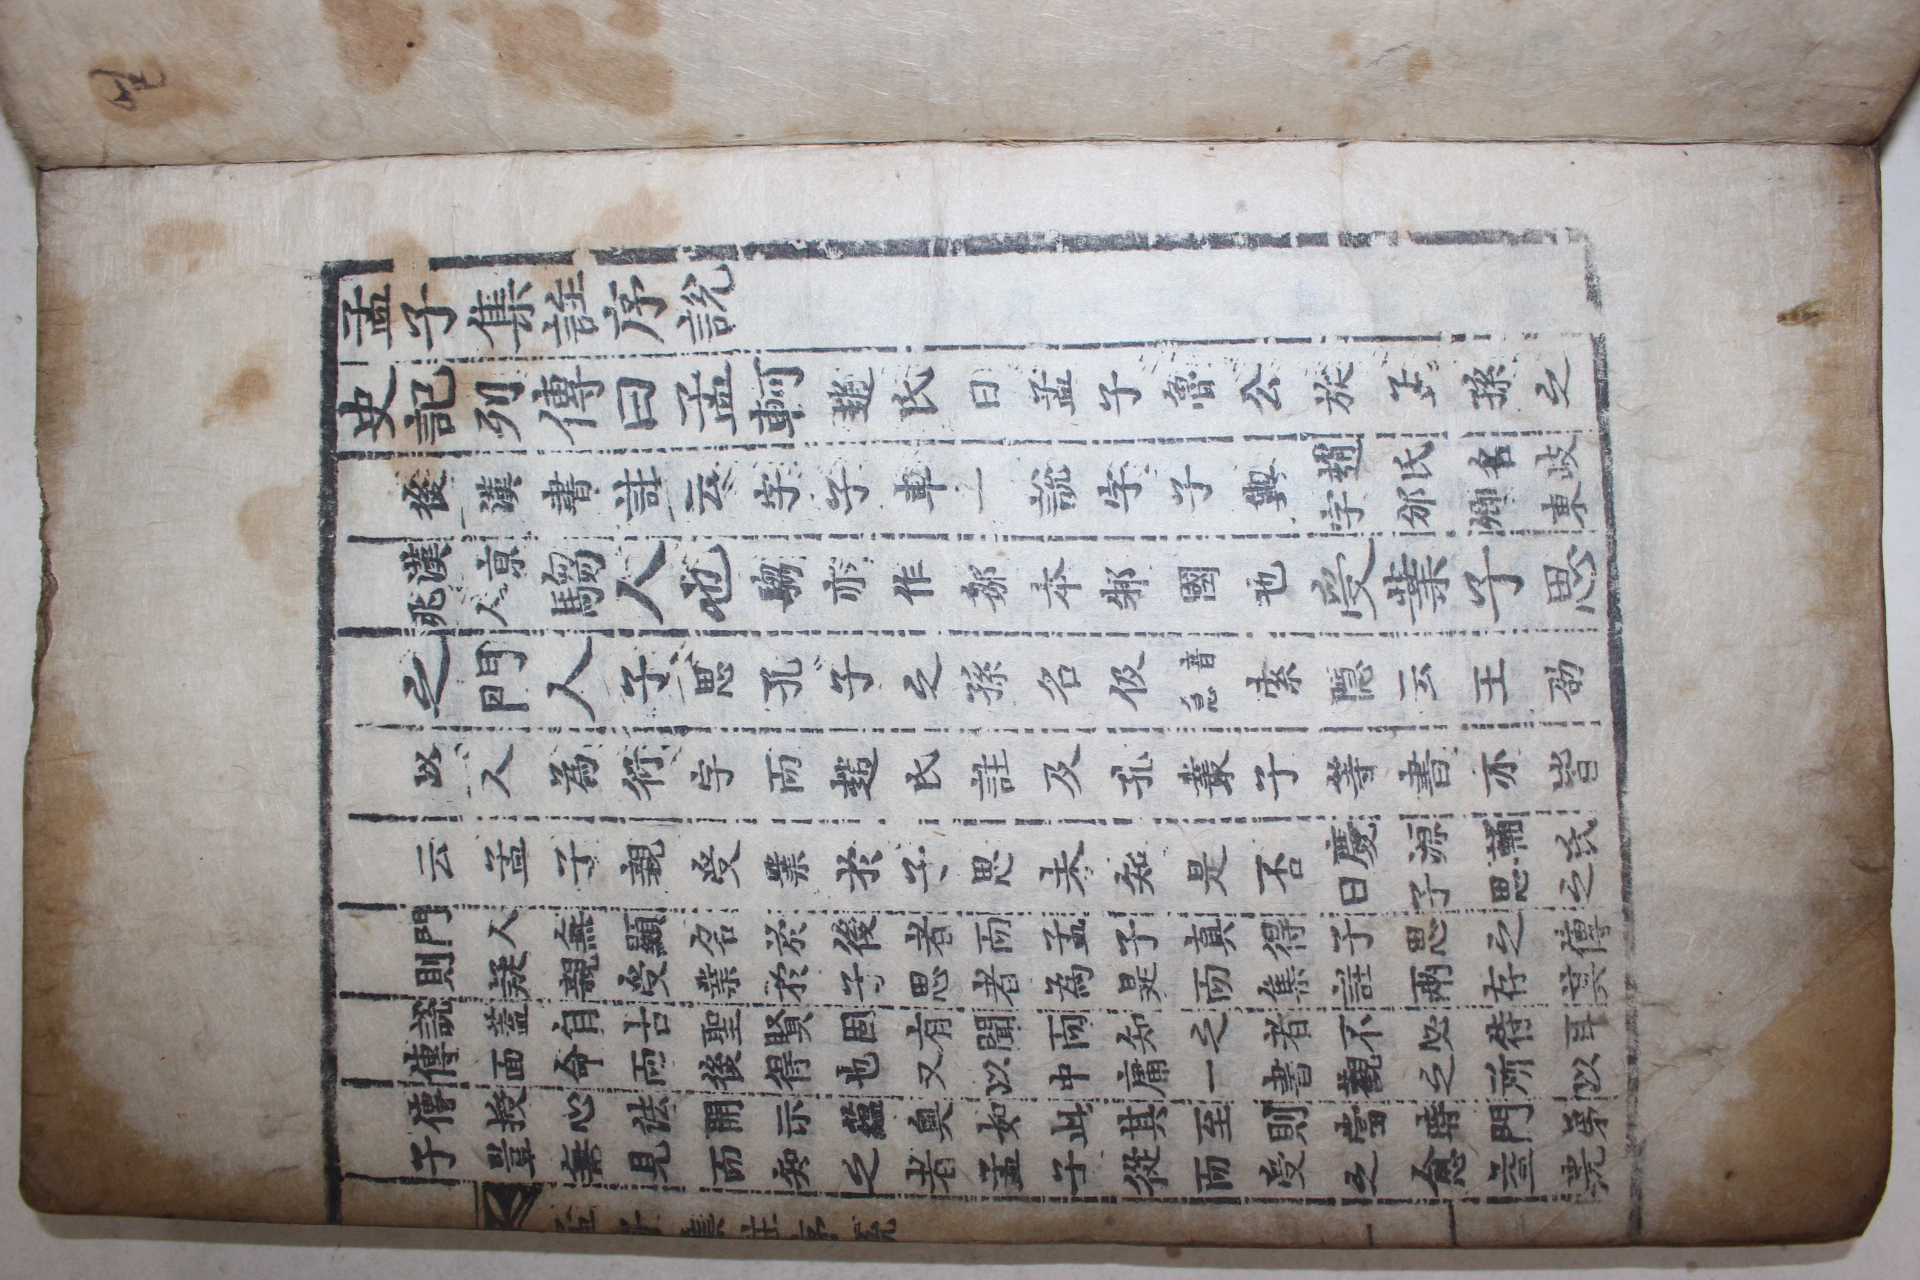 孟子集註序說
史記列傳曰孟軻趙氏曰孟子魯公族孟孫之
後漢書註云字子車一說字子輿趙氏名岐字邠卿東
漢京兆人騶人也騶亦作鄒本邾國也受業子思
之門人子思孔子之孫名伋音急索隱云王劭
以人為衍字而趙氏註及孔叢子等書亦皆
云孟子親受業於子思未知是否慶源輔氏曰子思之
門人無顯名於後者而孟子真得子思之傳
則疑親受業於子思者為是而集註兩存其
說蓋自古聖賢固有聞而知之者不必待耳
傳面命而後得也又以中庸一書觀之所以
傳授心法開示蘊奧如此其至則當時門弟
子豈無見而知之者孟子從而受之愈益光
孟子集註序說 一